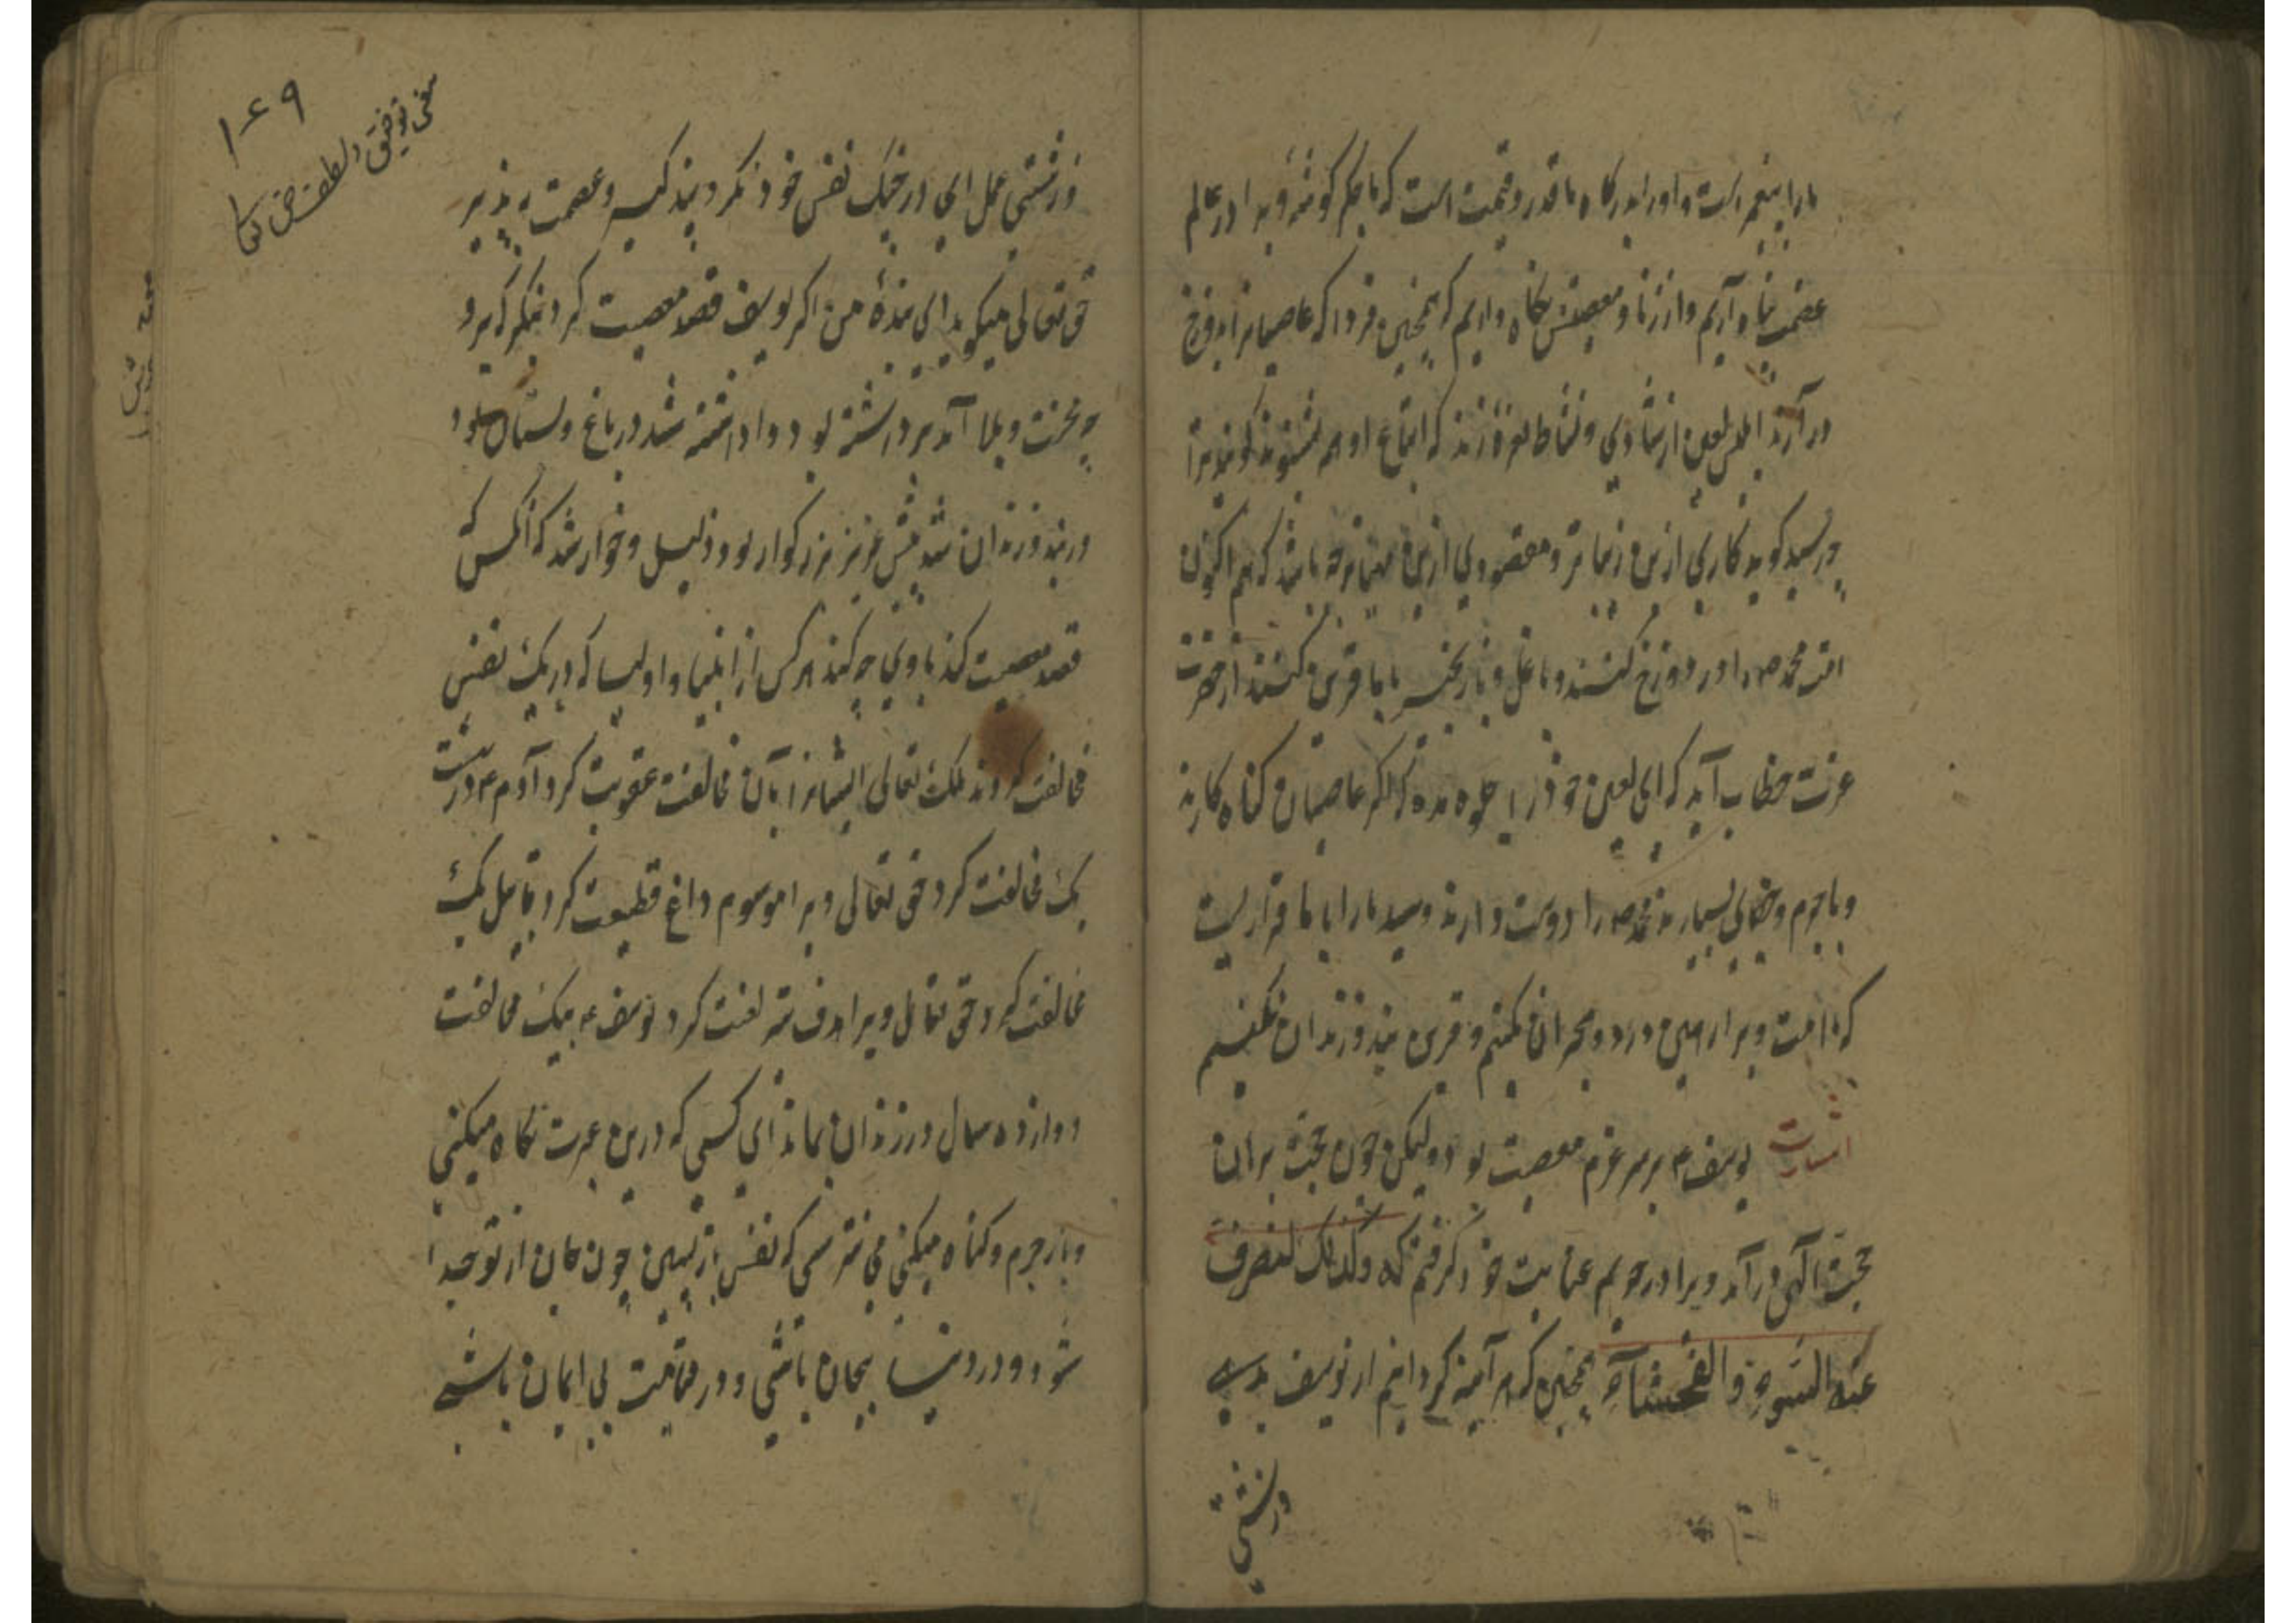 ما را پیغمبر است و او را بدرگاه ما قدر و قیمت است که ما بحکم گوشه ویرا در عالم
عصمت نگاه داریم و از زنا و معصیتش نگاه داریم که همچنین فردا که عاصیانرا بدوزخ
در آرند ابلیس لعین از شادی و نشاط نعره زند که اتباع او هم بشنوند گویند ترا
چه رسید گوید کاری ازین زیباتر و مقصودی ازین مهیاتر چه باشد که هم اکنون
امت محمد صم را در دوزخ کشند و با غل و زنجیر با ما قرین کنند از حضرت
عزت خطاب آید که ای لعین خود را جلوه مده که اگر عاصیان گناه کارند
و با جرم و خطای بسیارند محمد صم را دوست دارند و سید ما را با ما قراریست
که امت ویرا رهین درد و هجران نکنیم و قرین بند و زندان نکنیم
اشارت یوسف ء بر سر عزم معصیت بود ولیکن چون حجت بران
حجت الهی در آمد ویرا در حریم عنایت خود گرفتم که وکذلک لنصرف
عنه السّوء والفحشآء همچنین که هر آینه گردانیم از یوسف بدی
و زشتی
۱۴۹
و زشتی عمل ای در جنگ نفس خود نکرد بند کید و عصمت
حق تعالی میگوید ای بندهٔ من اگر یوسف قصد معصیت کرد بنگر که برو
چه محنت و بلا آمد برداشته بود و اداشته شد در باغ و بستان بود
در بند و زندان شد پیش عزیز بزرگوار بود ذلیل و خوار شد که آنکس که
قصد معصیت کند با وی چه کنند هر کس از انبیا و اولیا که در یک نفس
مخالفت کردند ملک تعالی ایشانرا بآن مخالفت عقوبت کرد آدم ء در بهشت
یک مخالفت کرد حق تعالی ویرا موسوم داغ قطیعت کرد قابیل یک
مخالفت کرد حق تعالی ویرا هدف تیر لعنت کرد یوسف ء بیک مخالفت
دوازده سال در زندان بماند ای کسی که درین عبرت نگاه میکنی
و باز جرم و گناه میکنی می نترسی که نفس بازپسین چون جان از تو جدا
شود و در دنیا بیجان باشی و در قیامت بی ایمان باشی